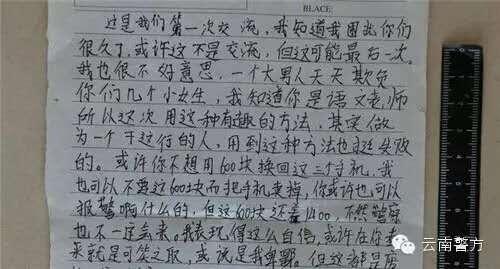 BLACE:
这是我们第一次交流,我知道我困扰你们
很久了,或许这不是交流,但这可能最后一次。
我也很不好意思,一个大男人天天欺负
你们几个小女生,我知道你是语文老师
所以这次用这种有趣的方法,其实做
为一个干这行的人,用到这种方法也挺失败
的。或许你不想用600块换回这三个手机,我
也可以不要这600块而把手机卖掉,你或许也可以
报警啊什么的,但这600块还是1400,不然警察
也不一定会来。我表现得这么自信,或许在你看
来就是可笑之取,或说是我卑鄙。但这
云南警方